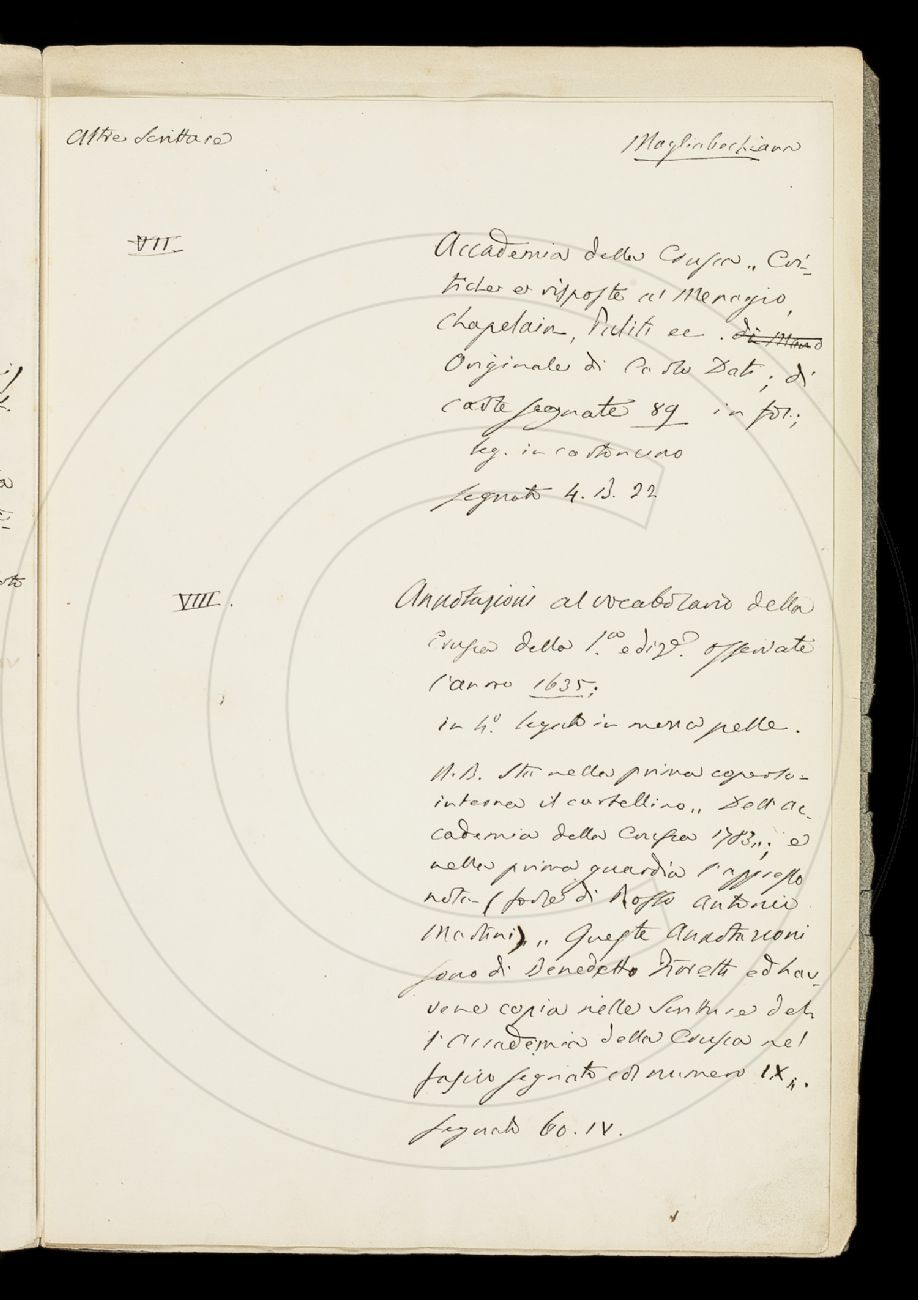 Altre Scritture
Magliabechiana
VII
Accademia della Crusca „ Cri-
tiche e risposte al Menagio,
Chapelain, Politi ec. di Mano
Originale di Carlo Dati; di
carte segnate 89 in fol.;
leg. in cartoncino
segnato 4. B. 22
VIII.
Annotazioni al vocabolario della
Crusca della 1.a ediz.e osservate
l'anno 1635;
in 4.o legato in mezza pelle.
N.B. Sta nella prima coperta
interna il cartellino „ Dell'Ac-
cademia della Crusca 1783„; e
nella prima guardia l'appresso
nota (forse di Rosso Antonio
Martini) „ Queste Annotazioni
sono di Benedetto Fioretti ed hav-
vene copia nelle Scritture del-
l'Accademia della Crusca nel
fascio segnato col numero IX„.
segnato 60. IV.